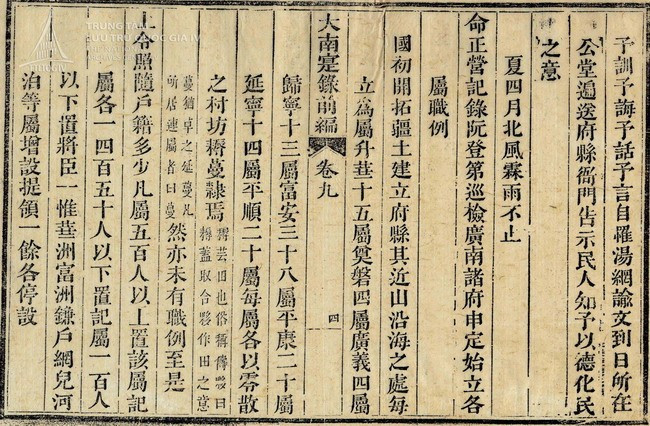 予訓予誨予話予言自罹湯網諭文到日所在
公堂遍送府縣衙門告示民人知予以德化民
之意
夏四月北風霖雨不止
命正營記錄阮登第巡檢廣南諸府申定始立各
屬職例
國初開拓疆土建立府縣其近山沿海之處每
立為屬升華十五屬奠磐四屬廣義四屬
大南寔錄前編 卷九 四
歸寧十三屬富安三十八屬平康二十屬
延寧十四屬平順二十屬每屬各以零散
之村坊耨蔓隸焉
耨芸田也俗稱儔耨曰
耨蓋取合夥作田之意
蔓猶草之延蔓凡
所居連屬者曰蔓
然亦未有職例至是
上令照隨戶籍多少凡屬五百人以上置該屬記
屬各一四百五十人以下置記屬一百人
以下置將臣一惟華洲富洲鎌戶網兒河
泊等屬增設提領一餘各停設
TRUNG TÂM
LƯU TRỮ QUỐC GIA IV